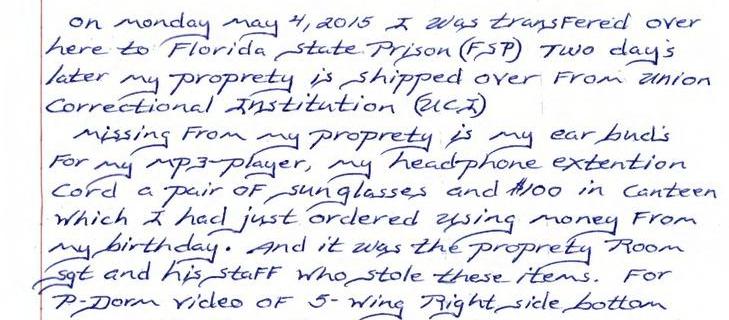 on monday may 4, 2015 I was transfered over
here to Florida state Prison (FSP) Two day's
later my proprety is shipped over From union
Correctional Institution (UCI)
missing From my proprety is my ear bud's
For my mp3-player, my headphone extention
Cord a pair OF sunglasses and $100 in Canteen
which I had just ordered using money From
my birthday. And it was the proprety Room
sgt and his staFF who stole these items. For
P-Dorm video OF 5-wing Right side bottom